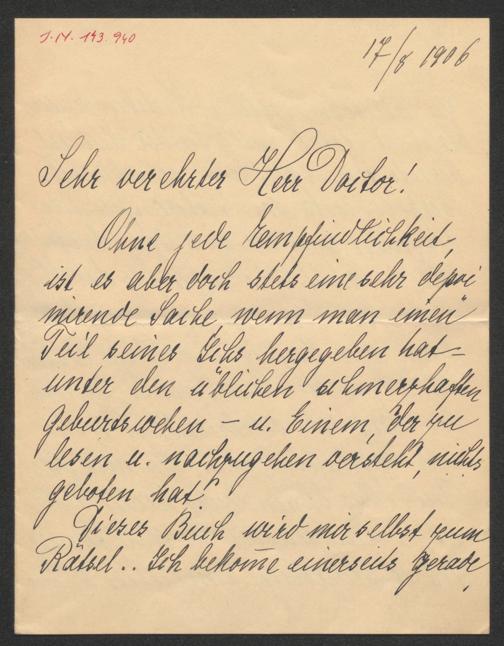 J.N. 143.940
17/8 1906
Sehr verehrter Herr Doctor!
Ohne jede Empfindlichkeit,
ist es aber doch stets eine sehr depri
mirende Sache, wenn man einen
Teil seines Ichs hergegeben hat –
unter den üblichen schmerzhaften
Geburtswehen – u. Einem, der zu
lesen u. nachzugehen versteht, nichts
geboten hat!
Dieses Buch wird mir selbst zum
Rätsel.. Ich bekom̄e einerseits gerade